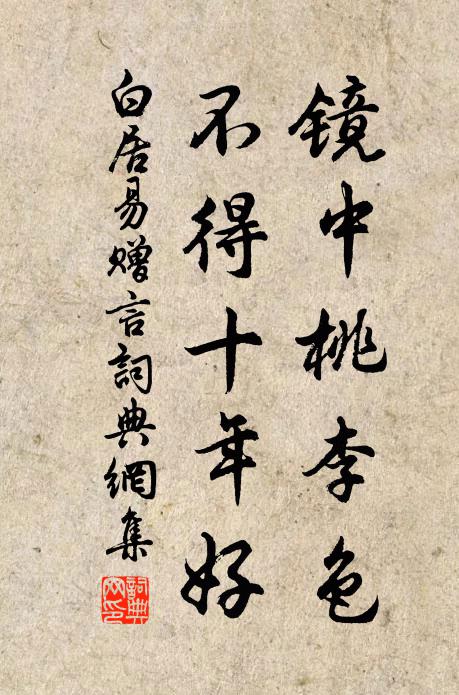 镜中桃李色
不得十年好
白居易赠言詞典網集
詞典网印